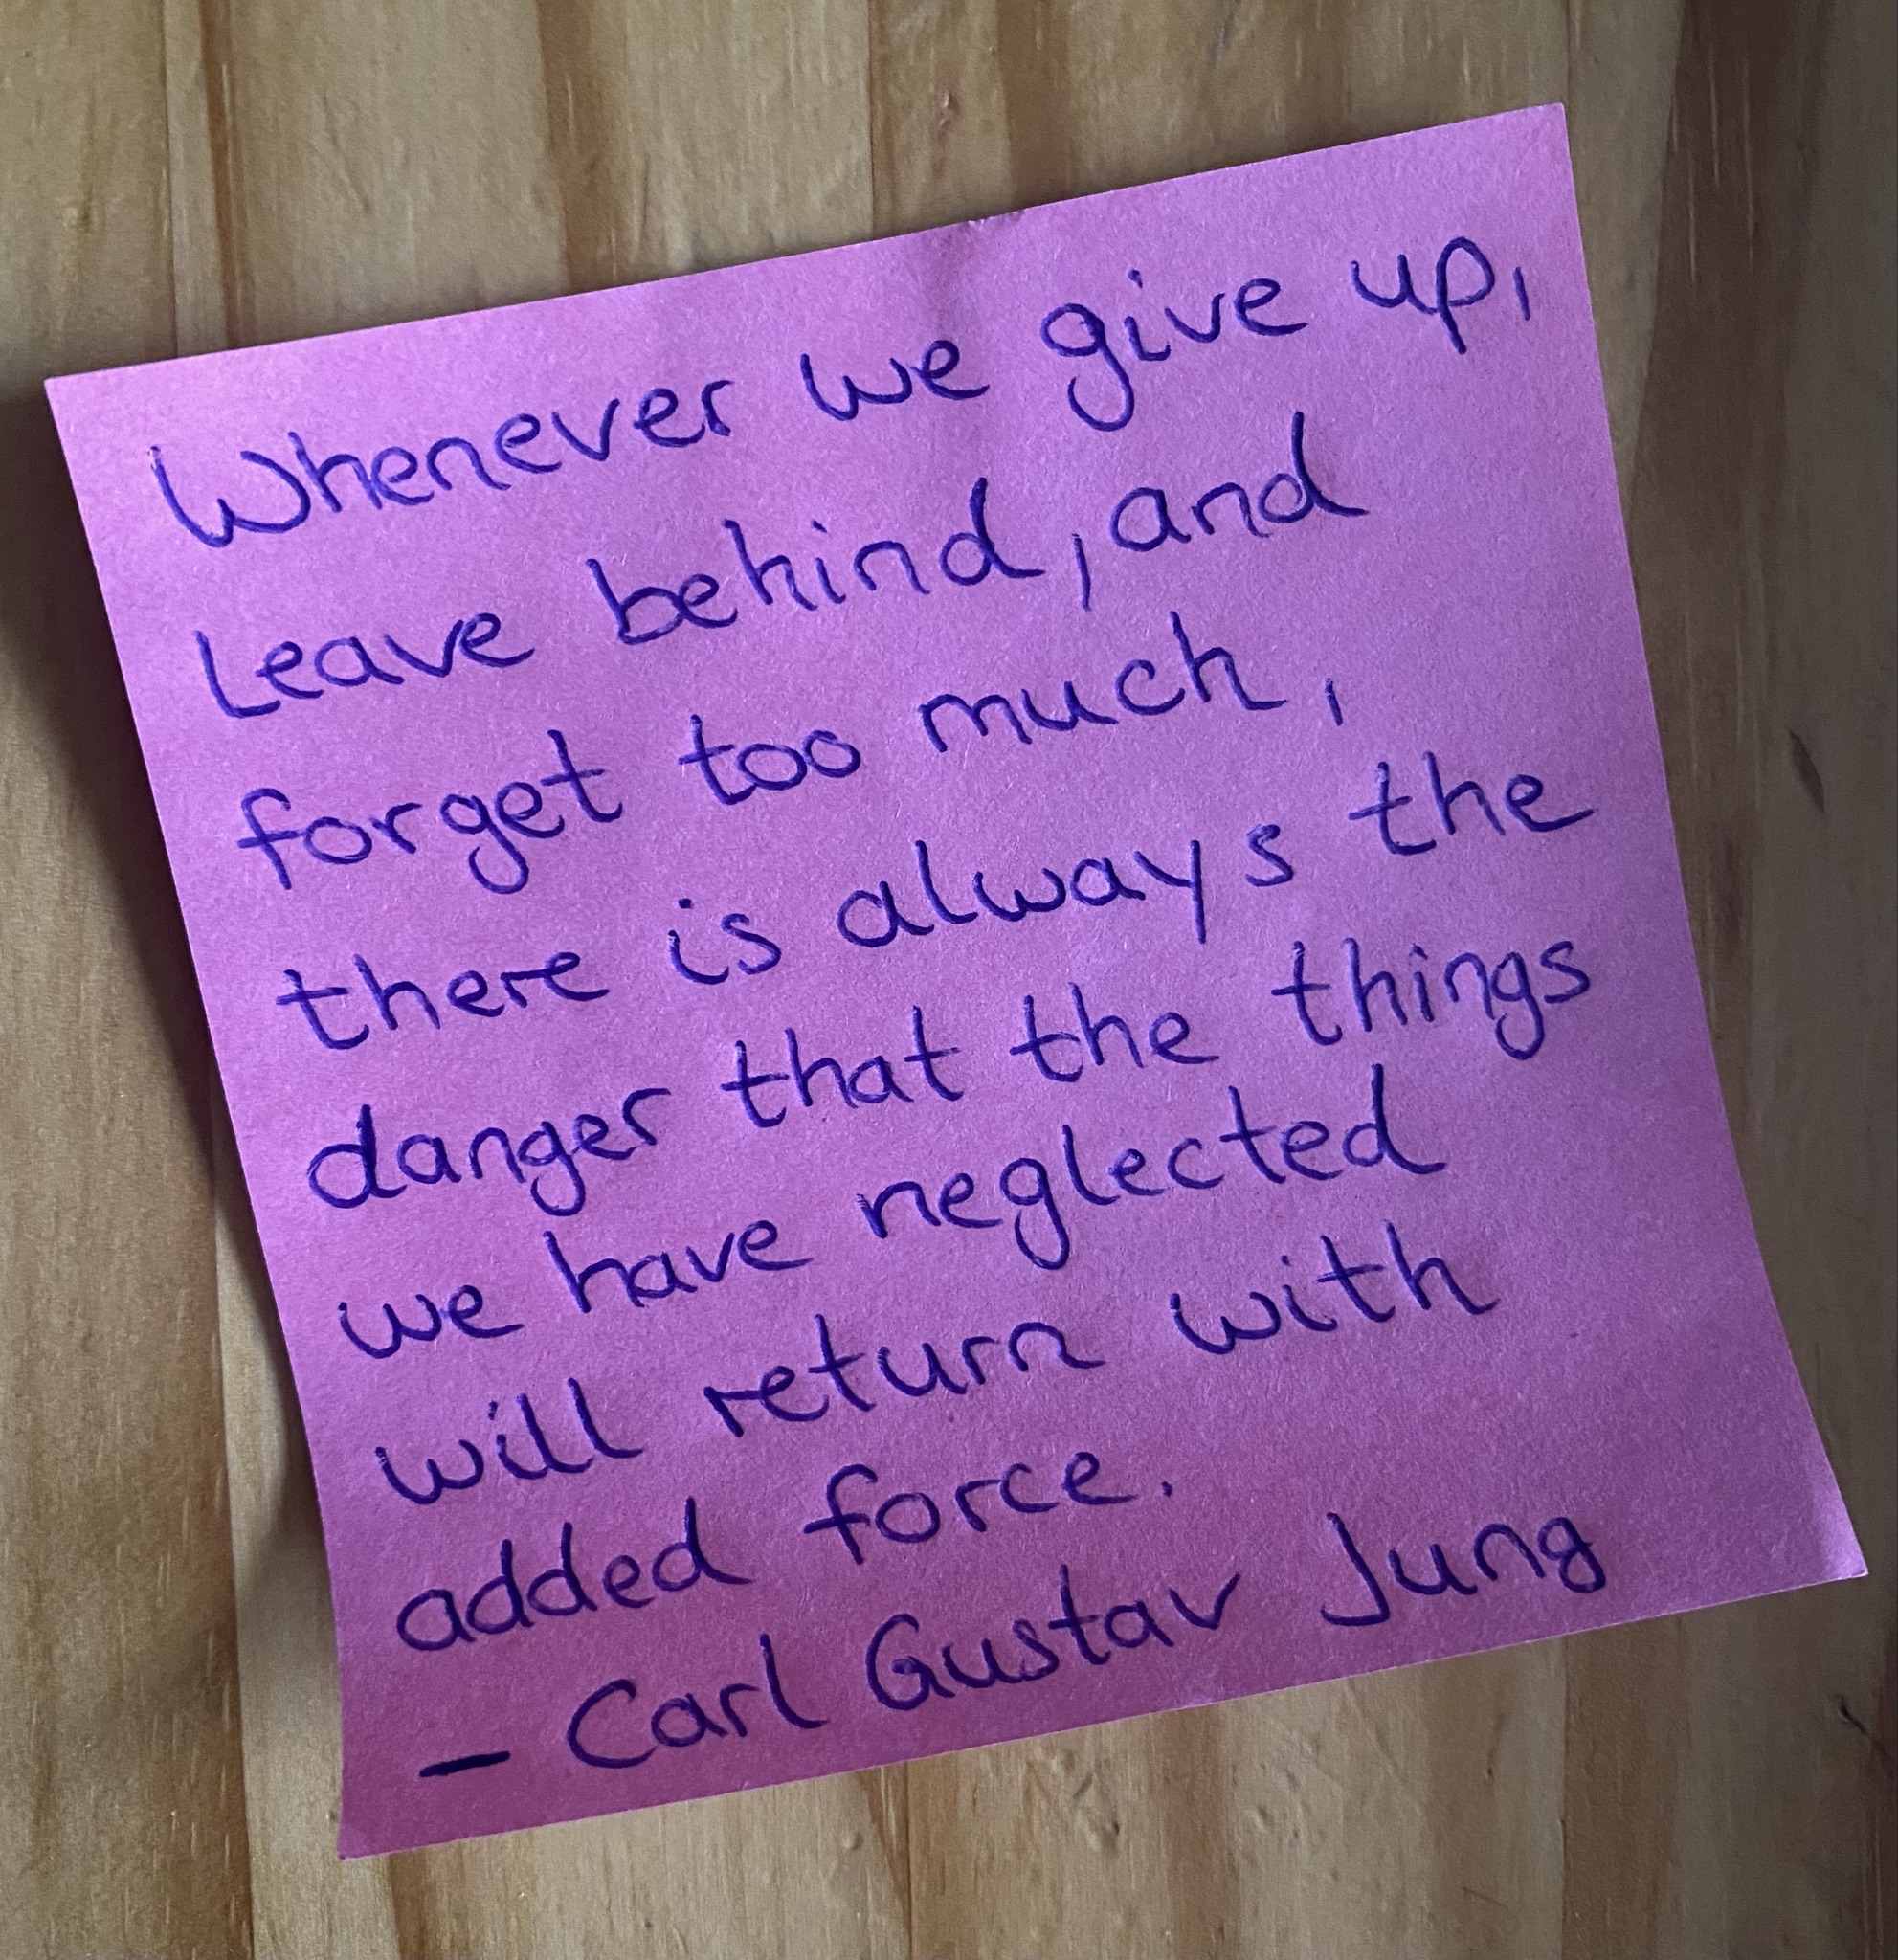 Whenever we give up,
Leave behind, and
forget too much,
there is always the
danger that the things
we have neglected
will return with
added force.
— Carl Gustav Jung